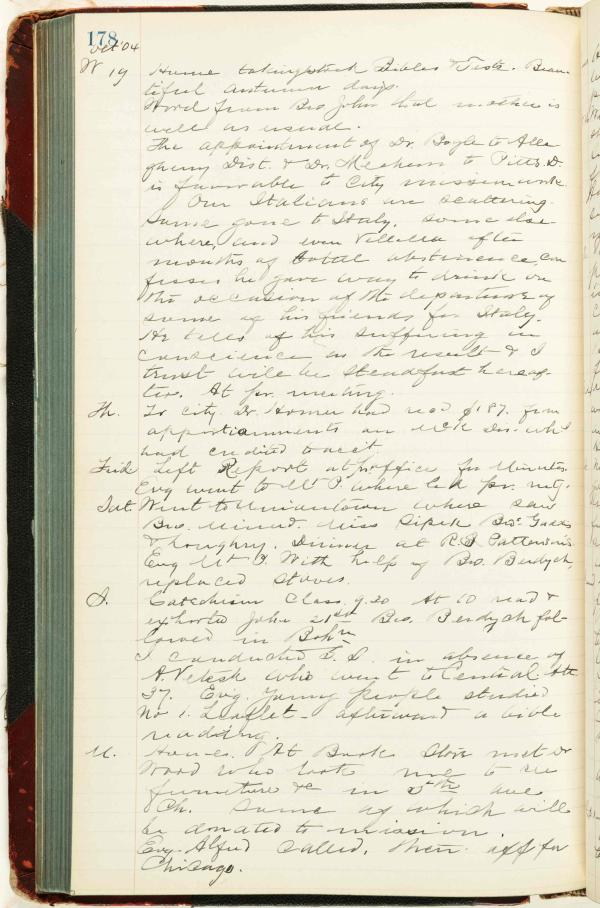 178
Oct '04
W 19 Home taking stock Bibles & Tests. Beau-
tiful autumn days.
Word from Bro John that mother is
well as usual.
The appointment of Dr. Boyle to Alle
gheny Dist. & Dr. Mechem to Pitts. D.
is favorable to City mission work.
Our Italians are scattering.
Some gone to Italy, some else
where, and even Villella after
months of total abstinence, con
fesses he gave way to drink on
the occasion of the departure of
some of his friends for Italy.
He tells of his suffering in
conscience as the result & I
trust will be steadfast hereaf-
ter. At pr. meeting.
Th. To city. Dr. Homer had recd $187. from
apportionments on McK Dis. wh I
had credited to acct.
Frid. Left Report at office for Minutes.
Evg went to Mt P. where led pr. mtg.
Sat. Went to Uniontown where saw
Bro. Miss Bro
& Loughry. Dinner at R.B. Patterson's
Evg Mt P. With help of Bro. Berdych,
replaced stoves.
S. Catechism Class 9.20 At 10 read &
exhorted John 21st Bro. Berdych fol-
lowed in Bohn
I conducted S.S. in absence of
who went to Central
37. Evg. Young people studied
No 1. Leaflet - afterward a bible
reading.
M. Home. At Book Store met Dr
Wood who took me to see
furniture &c in 5th ave
Ch. some of which will
be donated to mission.
Evg. Alfred called, then off for
Chicago.